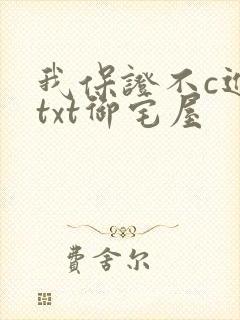 我保證不c進
txt御宅屋
費舍尔